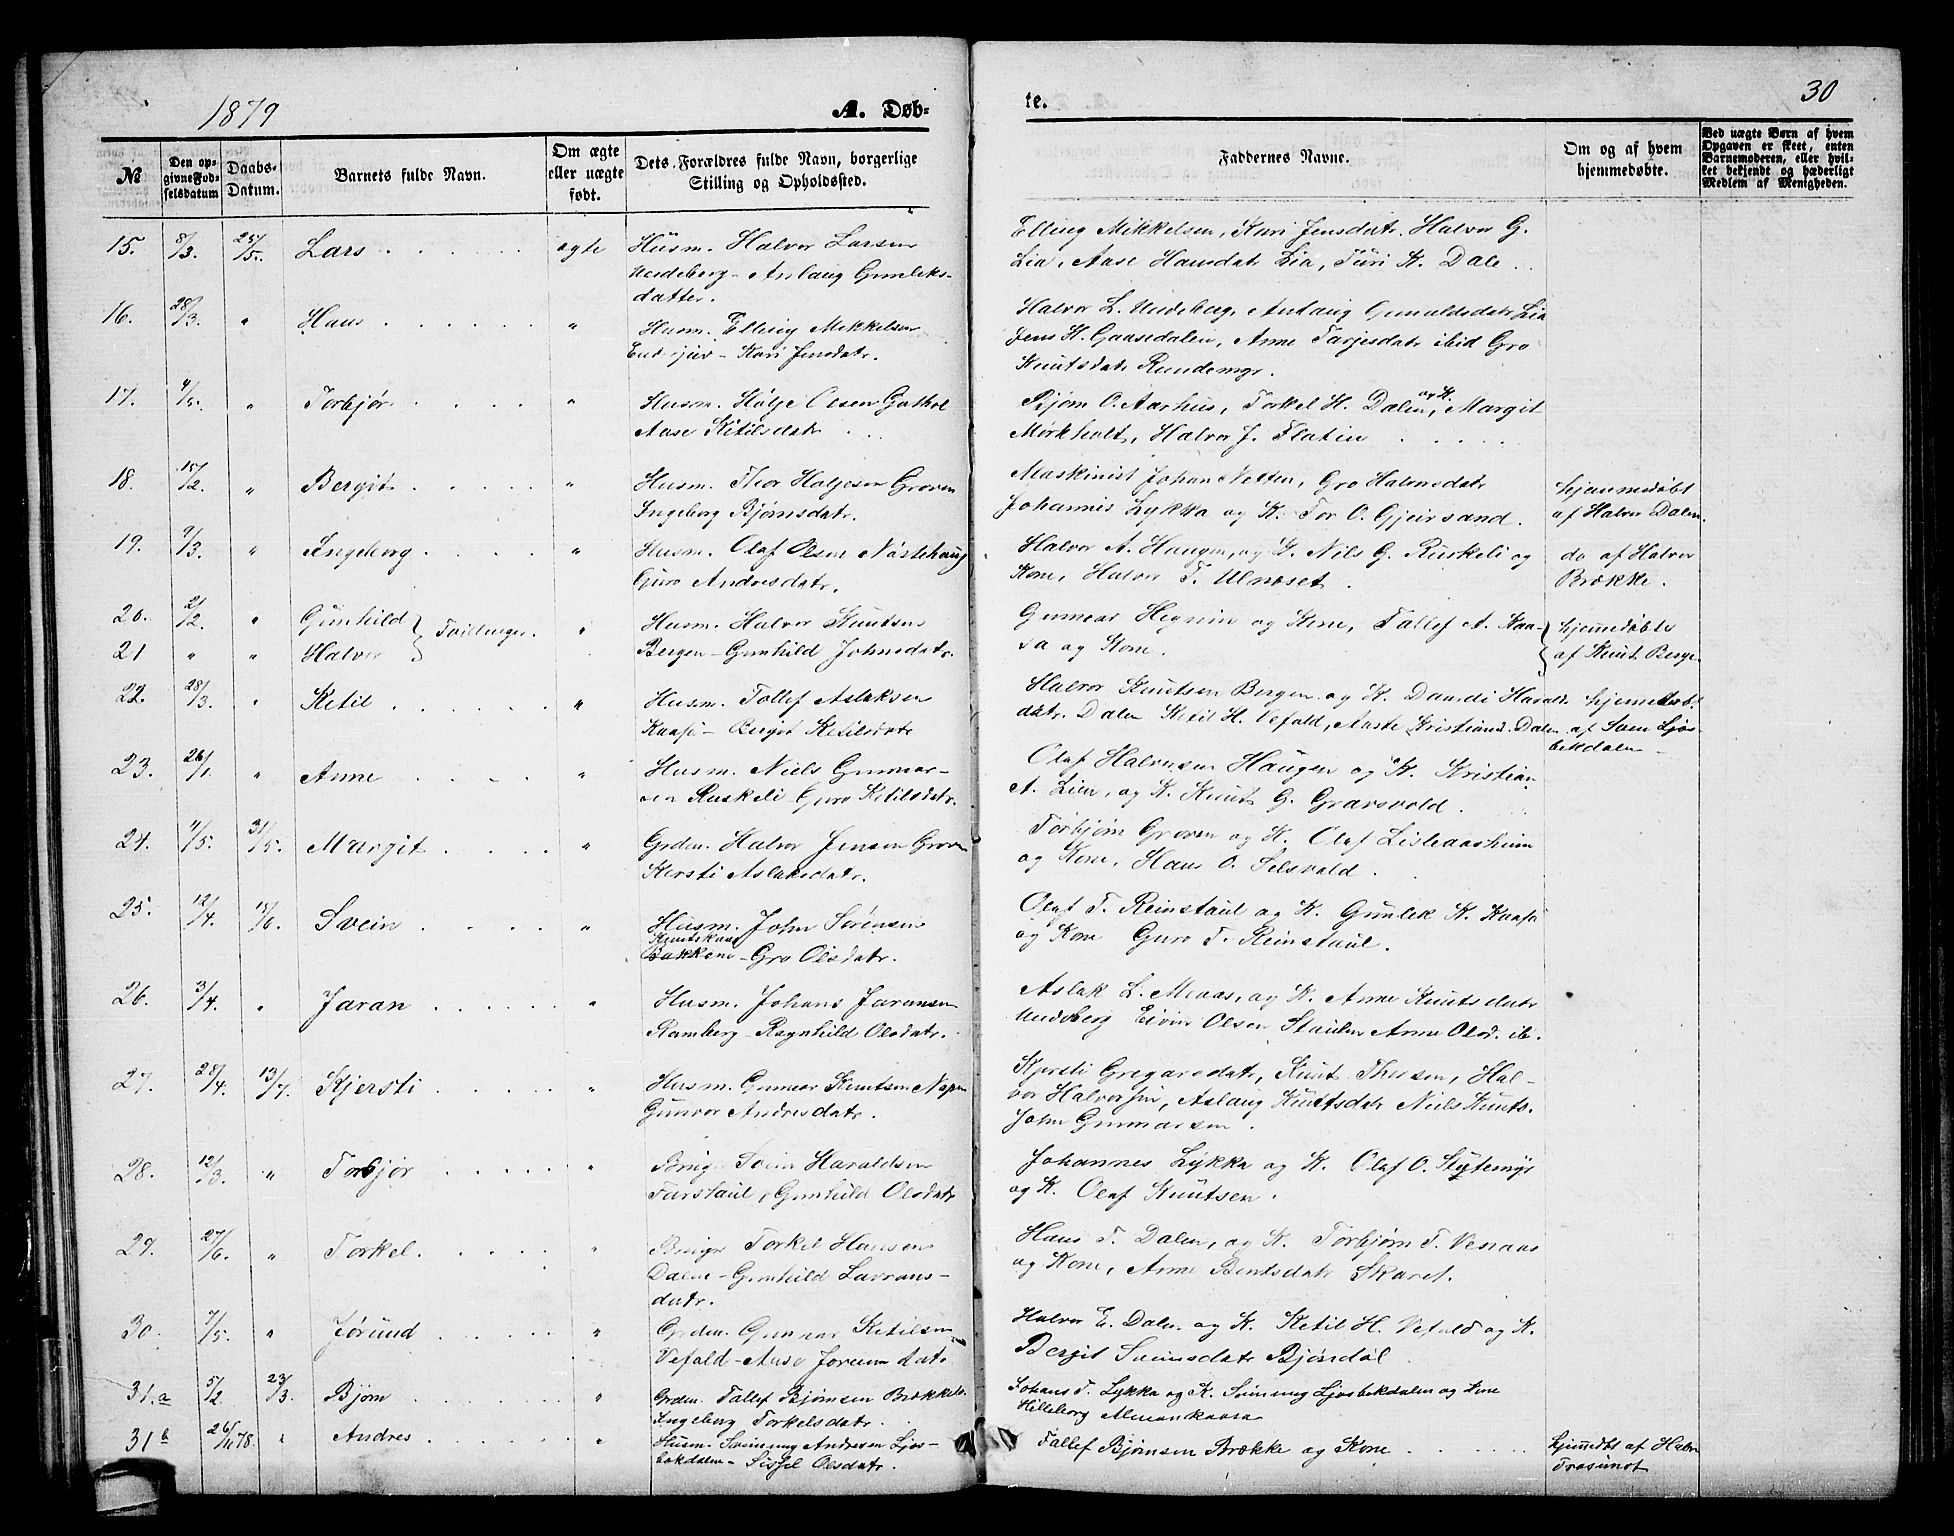 1879
A. Døb-
te.
30
№
Den opgivne Fødselsdatum
Daabs-Datum.
Barnets fulde Navn.
Om ægte eller uægte født.
Dets Forældres fulde Navn, borgerlige Stilling og Opholdssted.
Faddernes Navne.
Om og af hvem hjemmedøbte.
Ved uægte Børn af hvem Opgaven er skeet, enten Barnemoderen, eller hvilket bekjendt og hæderligt Medlem af Menigheden.
15. 8/3. 25/5. Lars ægte Husm. Halvor Larsen
Undeberg - Aslaug Gunleks-
datter.
Elling Mikkelsen, Kari Jensdatr. Halvor G.
Lia, Aase Hansdatr Lia, Turi K. Dale
16. 28/3. " Hans " Husm. Elling Mikkelsen
- Kari Jensdatr.
Halvor L. Undeberg, Aslaug Gunuldsdatr Lia
Jens H. Gaasedalen, Anne Tarjesdatr ibid Gro
Knutsdatr Rundemyr.
17. 4/5. " Torbjør " Husm. Hølje Olsen
Aase Ketilsdatr
Bjørn O. Aarhus, Torkel H. Dalen, og K. Margit
Mørkholt, Halvor J. Flatin
18. 15/2. " Bergit " Husm. Thor Høljesen Groven
Ingeborg Bjørnsdatr.
Maskinist Johan Netten, Gro Halvorsdatr
Johannis Lykka og K. Tor O. Gjeirsand.
hjemmedøbt
af Halvor Dalen.
19. 9/3. " Ingeborg " Husm. Olaf Olsen Nøstehaug
Guro Andresdatr.
Halvor A. Haugen, og K. Nils G. Ruskeli og
Kone, Halvor T. Ulnæset.
do af Halvor
Brække.
20. 2/2. " Gunhild } Tvillinger. " Husm. Halvor Knutsen
21 " " Halvor Bergen - Gunhild Johnsdatr.
Gunnar Hegnin og Kone, Tallef A. Kaa-
sa og Kone.
hjemmedøbte
af Knut Berge.
22. 28/3. " Ketil " Husm. Tollef Aslaksen
Kaasi - Bergit Ketilsdatr
Halvor Knutsen Bergen og K. Haralds-
datr. Dalen Ketil H. Vefald, Aaste Kristians. Dalen
hjemmedøbt
af Sven Ljos-
bekdalen
23. 26/1. " Anne " Husm. Niels Gunnar-
sen Ruskeli Guro Ketilsdatr.
Olaf Halvorsen Haugen og K. Kristian
A. Lien, og K. Knut G. Gransvold.
24. 11/5. 31/5. Margit " Grdm. Halvor Jensen Groven
Kersti Aslaksdatr.
Torbjørn Groven og K. Olaf Lisleaasheim
og Kone, Hans O. Selsvold.
25. 12/4. 15/6. Svein " Husm. John Sørensen
Knutskaas
Bakkene - Gro Olsdatr.
Olaf T. Reinstaul og K. Gunlek K. Kaasi
og Kone Guro T. Reinstaul.
26. 3/4. " Jaran " Husm. Johans Jaransen
Ramberg - Ragnhild Olsdatr.
Aslak L. Moaas, og K. Anne Knutsdatr
Undeberg Eivin Olsen Staulen Anne Olsd. ib.
27. 28/4. 13/7. Kjersti " Husm. Gunnar Knutsen Napen
Gunvor Andresdatr.
Kjersti Gregarsdatr, Knut Thorsen, Hal-
vor Halvorsen, Aslaug Knutsdatr Niels Knuts.
John Gunnarsen.
28. 12/3. " Torbjør " Brugr Svein Haraldsen
Tarstaul, Gunhild Olsdatr
Johannes Lykka og K. Olaf O. Slytemyr
og K. Olaf Knutsen.
29. 27/6. " Torkel. " Brugr Torkel Hansen
Dalen - Gunhild Lavrans-
datr.
Hans T. Dalen, og K. Torbjørn T. Venaas
og Kone, Anne Bentsdatr Skaret.
30. 7/5. " Jørund " Grdm. Gunnar Ketilsen
Vefald - Aase Jorunsdatr.
Halvor E. Dalen og K. Ketil H. Vefald og K.
Bergit Sveinsdatr Bjøndal.
31.a 5/2. 23/3. Bjørn " Grdm. Tallef Bjørnsen Brække
Ingeborg Torkelsdatr.
Johans T. Lykka og K. Svennung Ljosbekdalen og Kone
Hilleborg Almankaasa
31 b 26/11 78. " Andres " Husm. Svennung Andresen Ljos-
bekdalen - Sissel Olsdatr.
Tallef Bjørnsen Brække og Kone
hjemmedøbt af Halvor